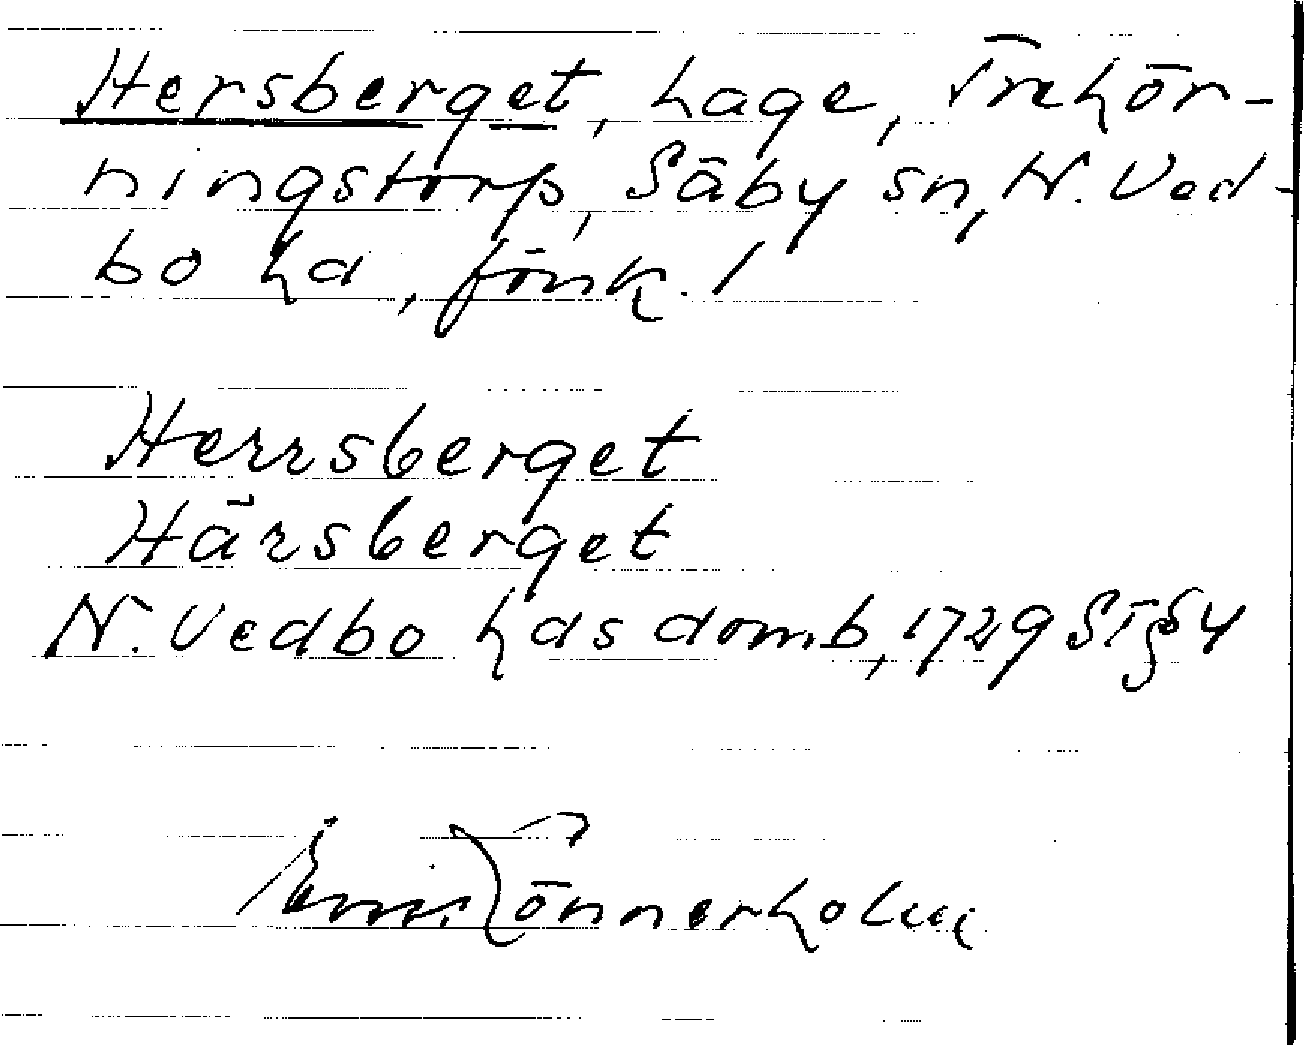 Hersberget, hage, Trehör-
ningstorp, Säby sn, N. Ved-
bo hd, Jönk. l
Herrsberget
Härsberget
N. Vedbo hds domb, 1729 ST § 4
Emil Lönnerholm